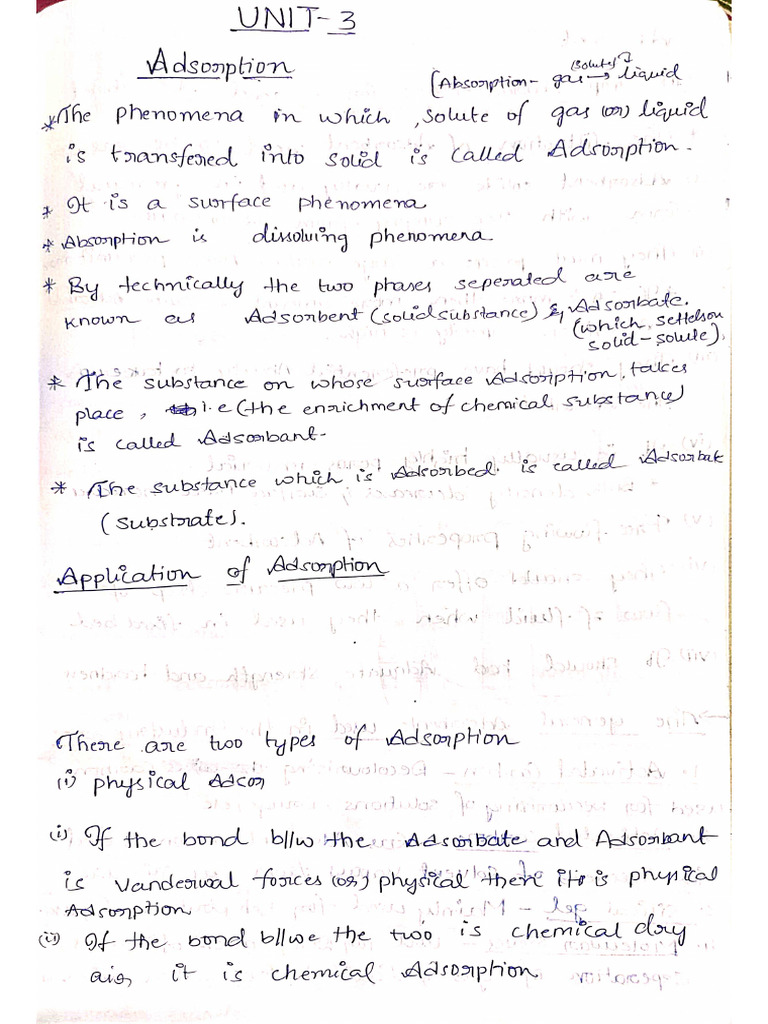 UNIT-3
Adsorption
(solute)
[Absorption- gas → liquid
* The phenomena in which, solute of gas (or) liquid
is transfered into solid is called Adsorption.
* It is a surface phenomena
* Absorption is dissolving phenomena
* By technically the two phases seperated are
known as Adsorbent (solid substance) & Adsorbate.
(which, settelson
solid-solute).
* The substance on whose surface Adsorption takes
place, i.e (the enrichment of chemical substance)
is called Adsorbant-
* The substance which is Adsorbed. is called Adsorbate
(substrate).
Application of Adsorption
There are two types of Adsorption
(i) physical Adsor
(i) If the bond b//w the Adsorbate and Adsorbant
is Vanderwal forces (or) physical there it is physical
Adsorption
(ii) If the bond b//we the two is chemical dry
air, it is chemical Adsorption